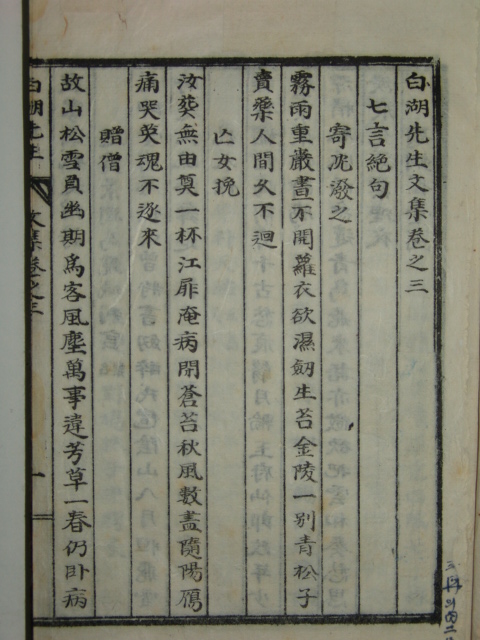 白湖先生文集卷之三
七言絶句
寄泥潑之
霧雨重巖晝不開蘿衣欲濕劒生苔金陵一别青松子
賣藥人間久不迴
亡女挽
汝葬無由奠一杯江扉淹病閉蒼苔秋風數盡隨陽鴈
痛哭英魂不逐來
贈僧
故山松雪負幽期爲客風塵萬事違芳草一春仍卧病
白湖先生
文集卷之三
一